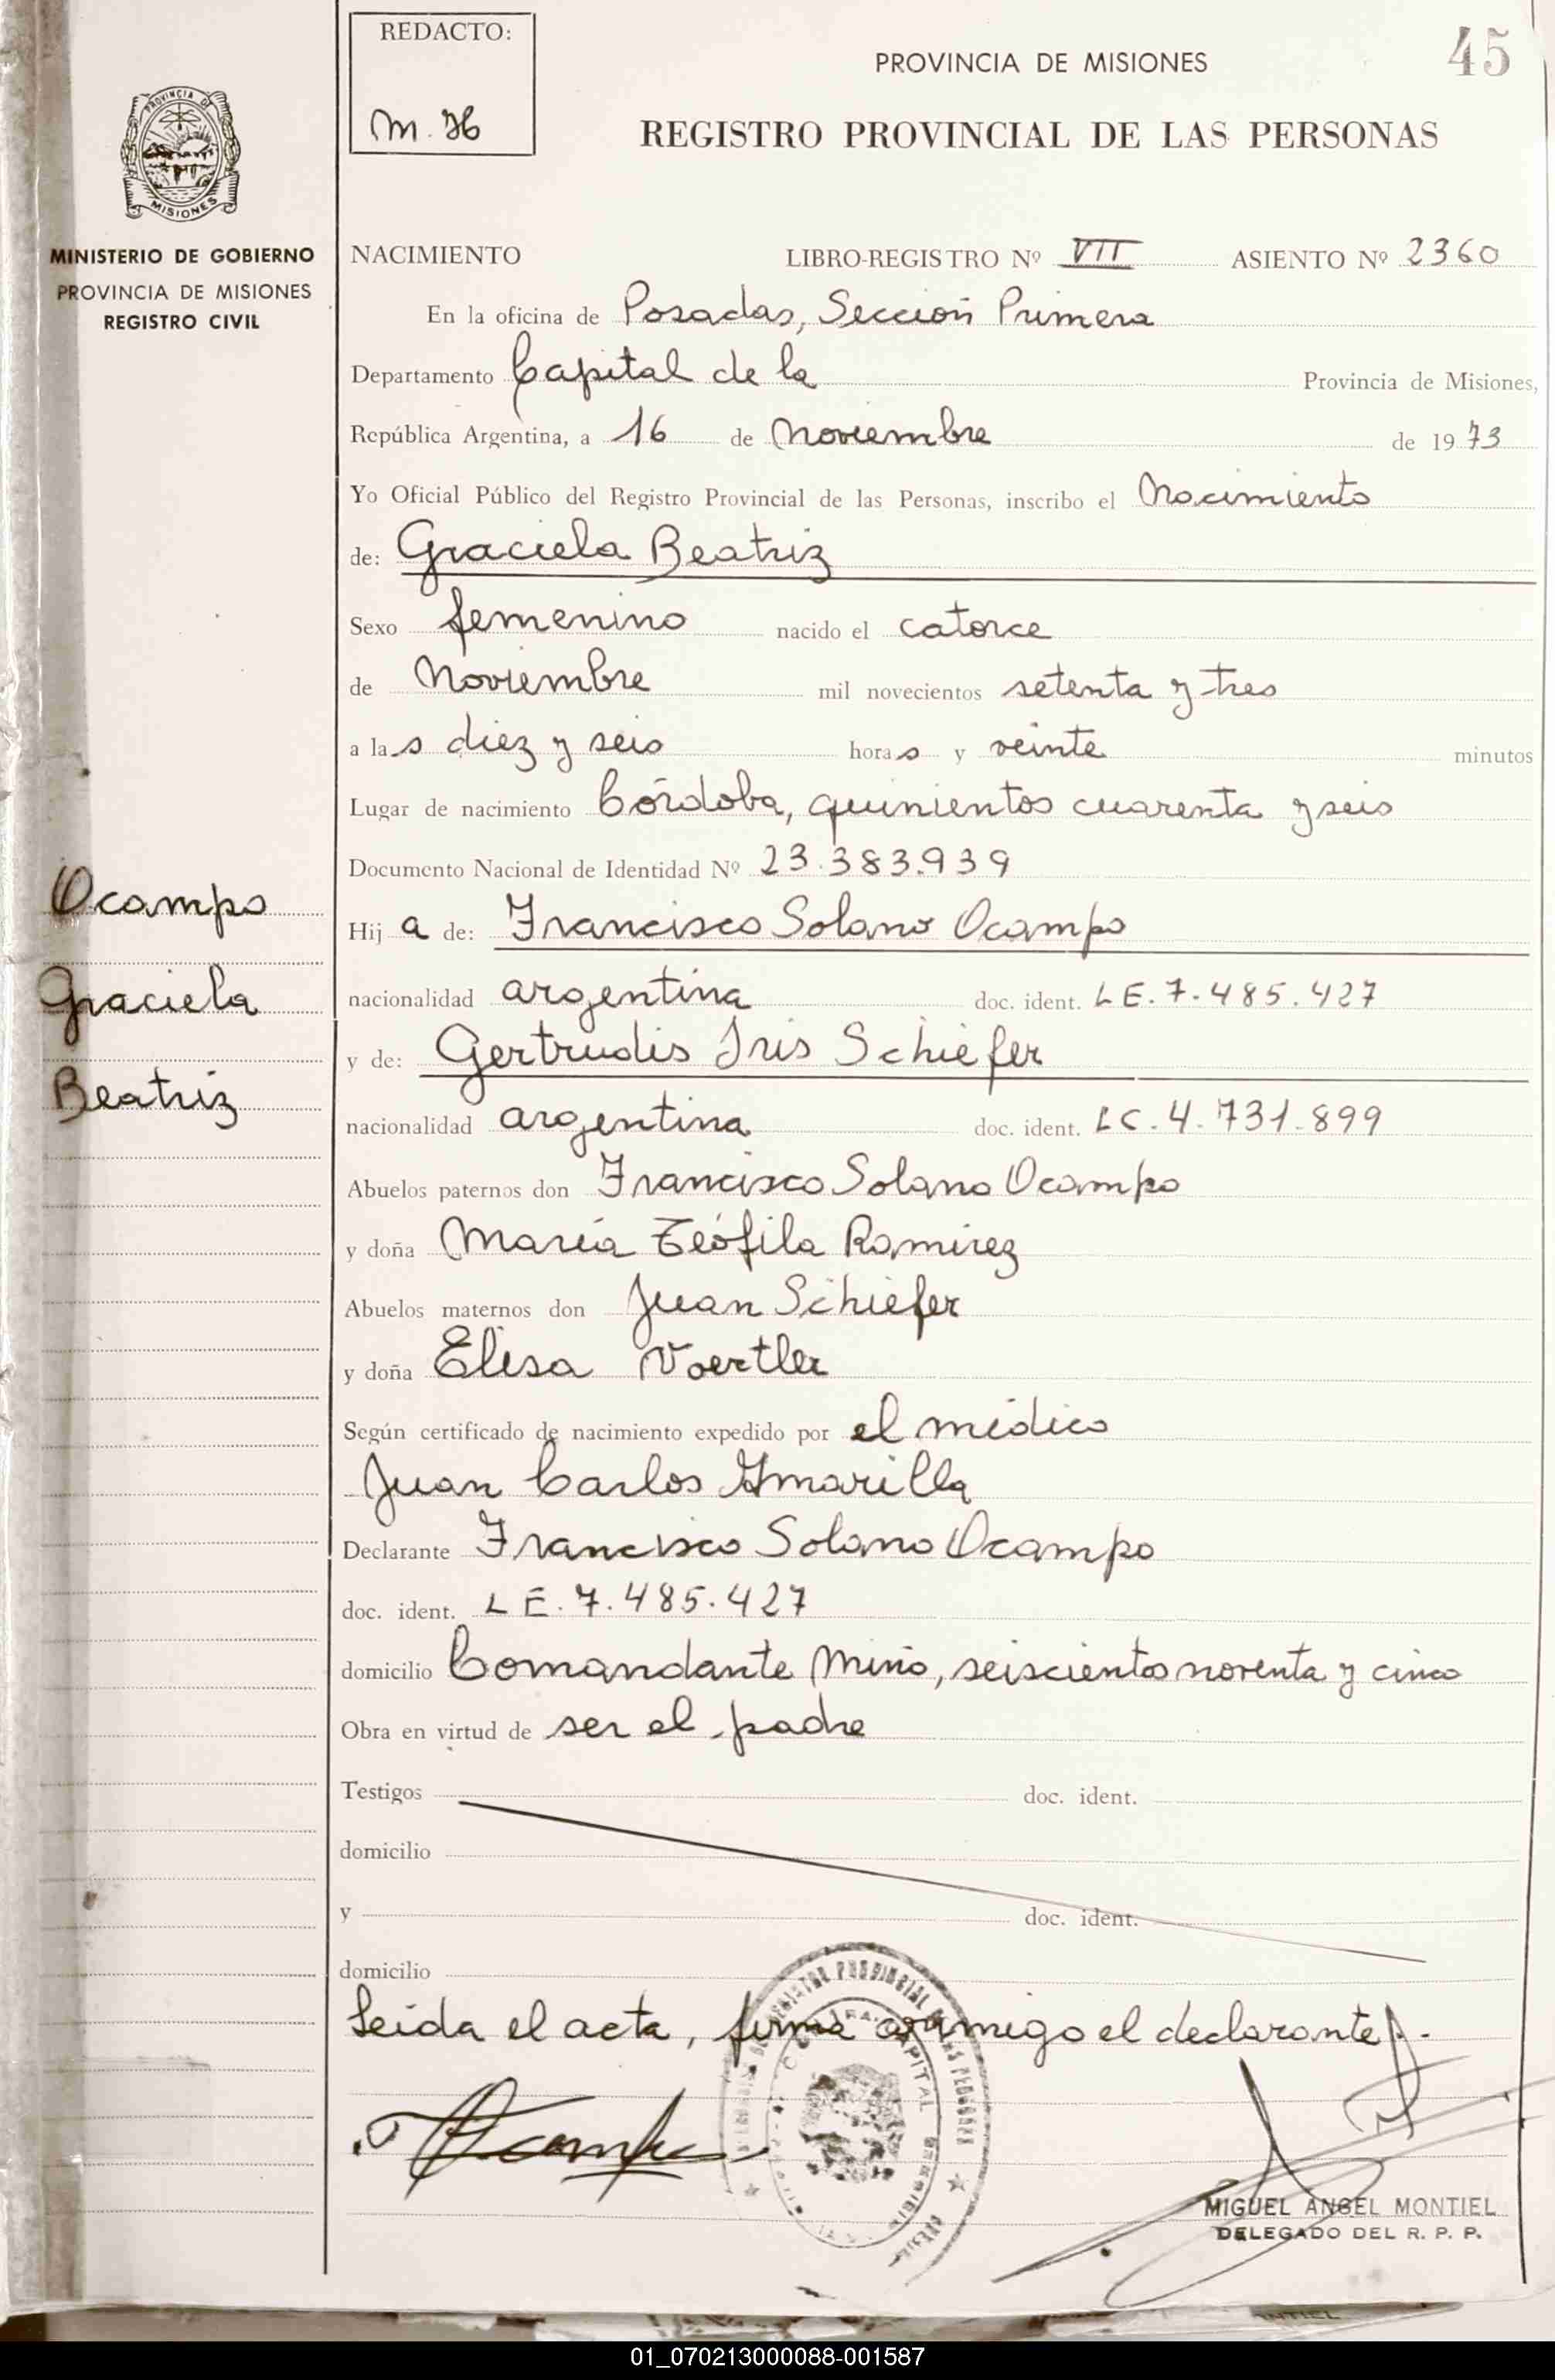 REDACTO:
PROVINCIA DE MISIONES
45
REGISTRO PROVINCIAL DE LAS PERSONAS
PROVINCIA DE
MISIONES
MINISTERIO DE GOBIERNO
PROVINCIA DE MISIONES
REGISTRO CIVIL
NACIMIENTO LIBRO-REGISTRO Nº VII ASIENTO Nº 2360
En la oficina de Posadas, Sección Primera
Departamento Capital de la Provincia de Misiones,
República Argentina, a 16 de Noviembre de 1973
Yo Oficial Público del Registro Provincial de las Personas, inscribo el Nacimiento
de: Graciela Beatriz
Sexo femenino nacido el catorce
de Noviembre mil novecientos setenta y tres
a las diez y seis horas y veinte minutos
Lugar de nacimiento Córdoba, quinientos cuarenta y seis
Documento Nacional de Identidad Nº 23.383.939
Ocampo
Graciela
Beatriz
Hija de: Francisco Solano Ocampo
nacionalidad argentina doc. ident. LE.7.485.427
y de: Gertrudis Iris Schiefer
nacionalidad argentina doc. ident. LC.4.731.899
Abuelos paternos don Francisco Solano Ocampo
y doña María Teófila Ramirez
Abuelos maternos don Juan Schiefer
y doña Elisa
Según certificado de nacimiento expedido por el médico
Juan Carlos Amarilla
Declarante Francisco Solano Ocampo
doc. ident. LE.7.485.427
domicilio Comandante Miño, seiscientos noventa y cinco
Obra en virtud de ser el padre
Testigos doc. ident.
domicilio
y doc. ident.
domicilio
Leída el acta, firma conmigo el declarante.-
Ocampo
MIGUEL ANGEL MONTIEL
DELEGADO DEL R. P. P.
01_070213000088-001587